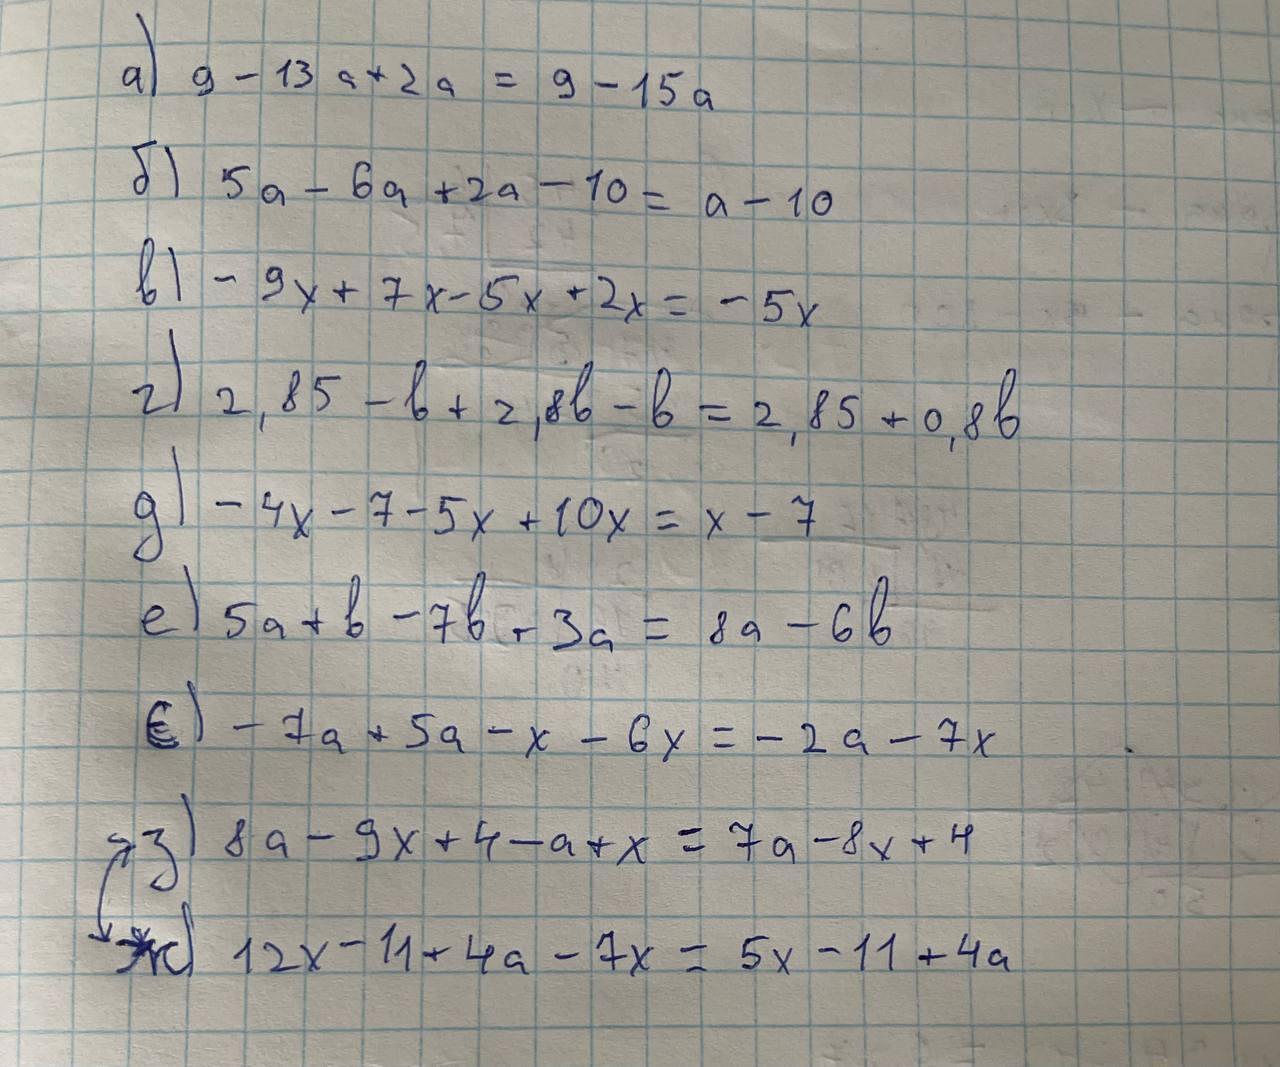 а) 9 - 13a + 2a = 9 - 15a
б) 5a - 6a + 2a - 10 = a - 10
в) - 9x + 7x - 5x + 2x = - 5x
г) 2,85 - b + 2,8b - b = 2,85 + 0,8b
д) - 4x - 7 - 5x + 10x = x - 7
е) 5a + b - 7b + 3a = 8a - 6b
є) - 7a + 5a - x - 6x = - 2a - 7x
з) 8a - 9x + 4 - a + x = 7a - 8x + 4
ж) 12x - 11 + 4a - 7x = 5x - 11 + 4a